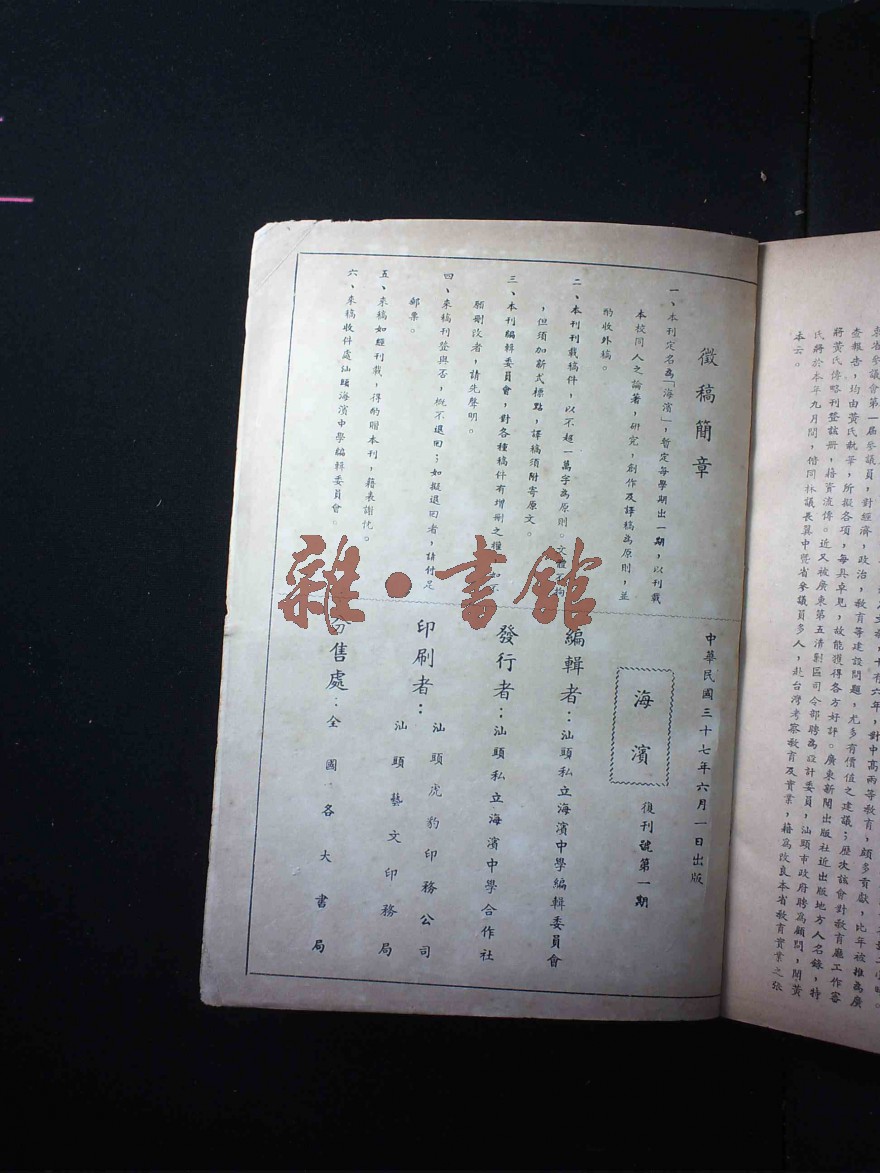 東省參議會第一屆參議員，對經濟，政治，教育等建設問題，尤多有價值之建議；歷次該會對教育廳工作審
查報告，均由黃氏執筆，所擬各項，每具卓見，故能獲得各方好評。廣東新聞出版社近出版地方人名錄，特
將黃氏傳略刊登該册，藉資流傳。近又被廣東第五清剿區司令部聘為設計委員，汕頭市政府聘為顧問，聞黃
氏將於本年九月間，偕同林議長翼中暨省參議員多人，赴台灣考察教育及實業，藉為改良本省教育實業之張
本云。
徵稿簡章
一、本刊定名為「海濱」，暫定每學期出一期，以刊載
本校同人之論著，研究，創作及譯稿為原則，並
酌收外稿。
二、本刊刊載稿件，以不超一萬字為原則。文體不拘
，但須加新式標點，譯稿須附寄原文。
三、本刊編輯委員會，對各種稿件有增刪之權，如不
願刪改者，請先聲明。
四、來稿刊登與否，概不退囘；如擬退囘者，請付足
郵票。
五、來稿如經刊載，得酌贈本刊，藉表謝忱。
六、來稿收件處汕頭海濱中學編輯委員會。
中華民國三十七年六月一日出版
海濱
復刊號第一期
編輯者：汕頭私立海濱中學編輯委員會
發行者：汕頭私立海濱中學合作社
印刷者：汕頭虎豹印務公司
汕頭藝文印務局
分售處：全國各大書局
雜·書館